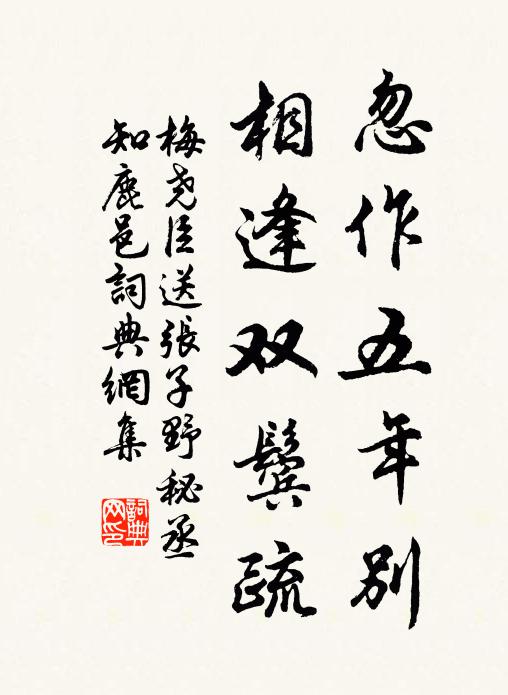 忽作五年别
相逢双鬓疏
梅尧臣送張子野秘丞
知鹿邑詞典網集
詞典
网印